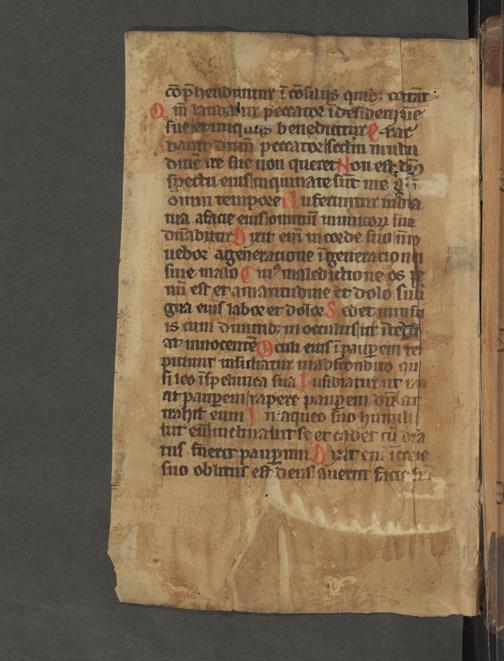 cōp̄henduntur ī cōsiliis quibꝫ cogitāt
Qm̄ laudatur peccator ī desiderijs aīe
sue et iniquus benedicitur Exac
bauit dnm̄ peccator secdm̄ multitu
dinē ire sue non queret Non est ds̄ ī
spectu eius inquinate sūt uie illi
omni tempore Auferuntur iudicia
tua a facie eius omniū inimicorꝝ suoꝝ
dn̄abitur Dixit eī in corde suo nō mo
uebor a generatione ī generationē
sine malo Cuiꝰ maledictione os ple
nū est et amaritudine et dolo sub lī
gua eius labor et dolor Sedet in insidi
is cum diuitibꝫ in occultis ut īterfici
at innocentē Oculi eius ī paupem re
spiciunt insidiatur in abscondito qua
si leo ī spelunca sua Insidiatur ut rapi
at paupem rapere paupem dū at
trahit eum In laqueo suo humilia
bit eū inclinabit se et cadet cū dn̄a
tus fuerit pauperum Dixit eī ī corde
suo oblitus est deus auertit faciē suā